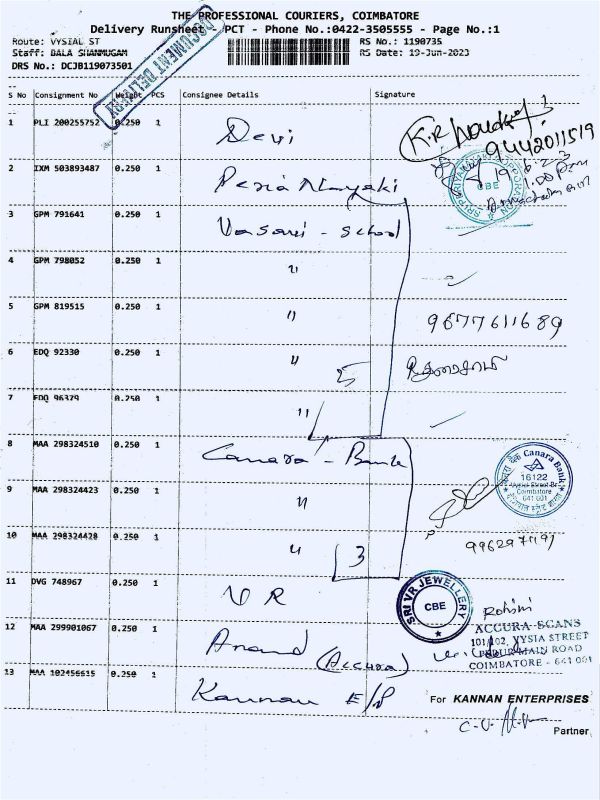 THE PROFESSIONAL COURIERS, COIMBATORE
Delivery Runsheet PCT - Phone No.:0422-3505555 - Page No.:1
Route: VYSIAL ST RS No.: 1190735
Staff: BALA SHANMUGAM RS Date: 19-Jun-2023
DRS No.: DCJB119073501
DOCUMENT DELIVERY
S No Consignment No Weight PCS Consignee Details Signature
1 PLI 200255752 0.250 1 Devi
9442011519
2 IXM 503893487 0.250 1 Peria Nayaki
CBE
19.6.23
1.00 Pm
3 GPM 791641 0.250 1 Vasavi - School
4 GPM 798052 0.250 1 "
5 GPM 819515 0.250 1 " 9677611689
6 EDQ 92330 0.250 1 " 5
7 EDQ 96379 0.250 1 "
8 MAA 298324510 0.250 1 Canara - Bank
Canara Bank
16122
Coimbatore
641 001
9 MAA 298324423 0.250 1 "
10 MAA 298324428 0.250 1 " 3
11 DVG 748967 0.250 1 V R
SRI VR JEWELLERY
CBE
Rohini
12 MAA 299901067 0.250 1 Anand (Accura)
ACCURA SCANS
101,102, VYSIA STREET
FOUR MAIN ROAD
COIMBATORE - 641 001
13 MAA 102456615 0.250 1 Kannan E/P
For KANNAN ENTERPRISES
Partner